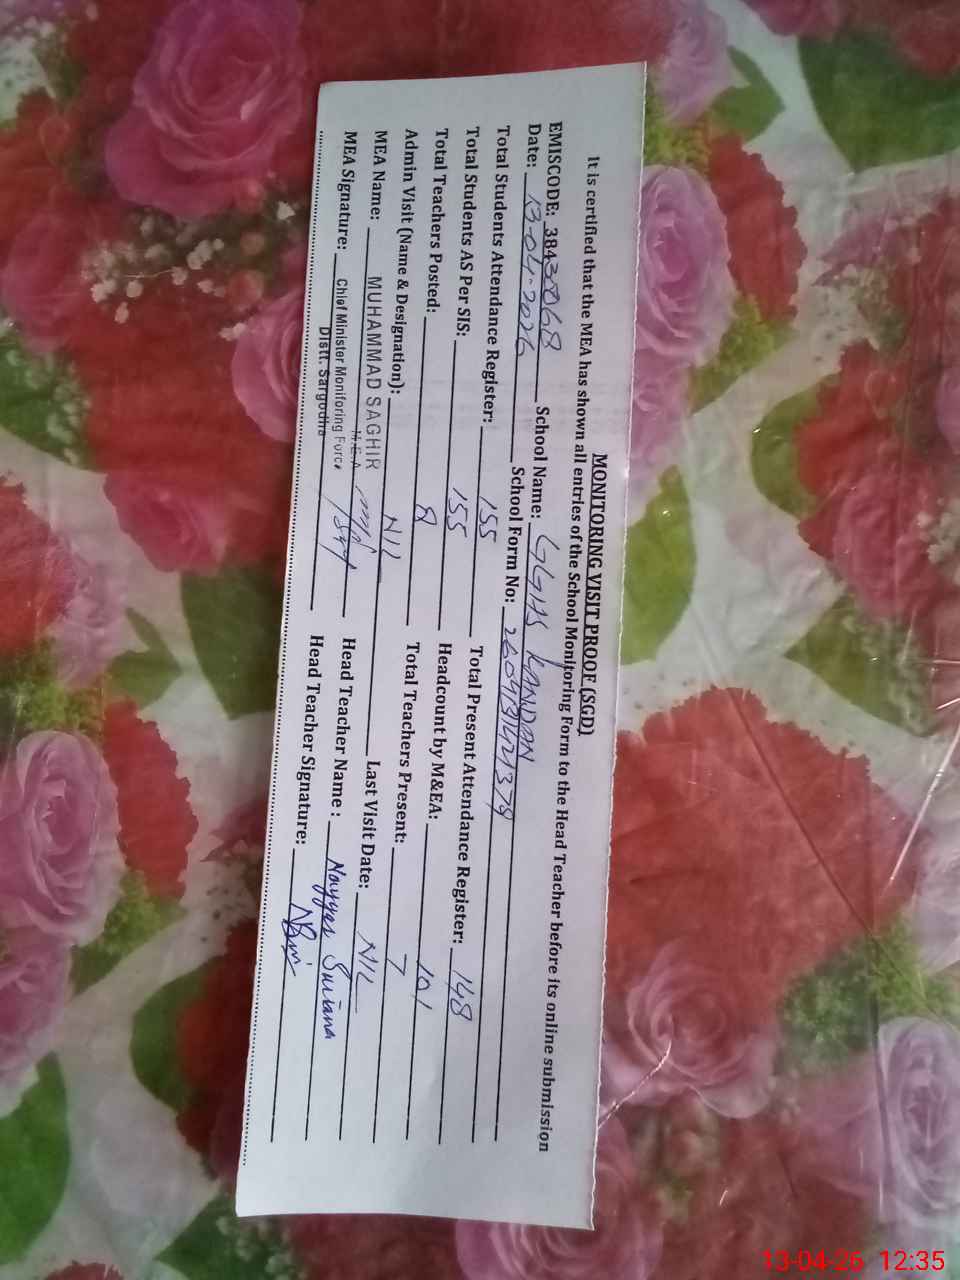 MONITORING VISIT PROOF (SGD)
It is certified that the MEA has shown all entries of the School Monitoring Form to the Head Teacher before its online submission
EMISCODE: 38430068 School Name: GGHS KANDAN
Date: 13-04-2026 School Form No:
Total Students Attendance Register: 155 Total Present Attendance Register: 148
Total Students AS Per SIS: 155 Headcount by M&EA: 101
Total Teachers Posted: 8 Total Teachers Present: 7
Admin Visit (Name & Designation): NIL Last Visit Date: NIL
MEA Name: MUHAMMAD SAGHIR Head Teacher Name : Nayyer Sultana
M.E.A
MEA Signature: Chief Minister Monitoring Force Head Teacher Signature:
Distt. Sargodha
13-04-26 12:35